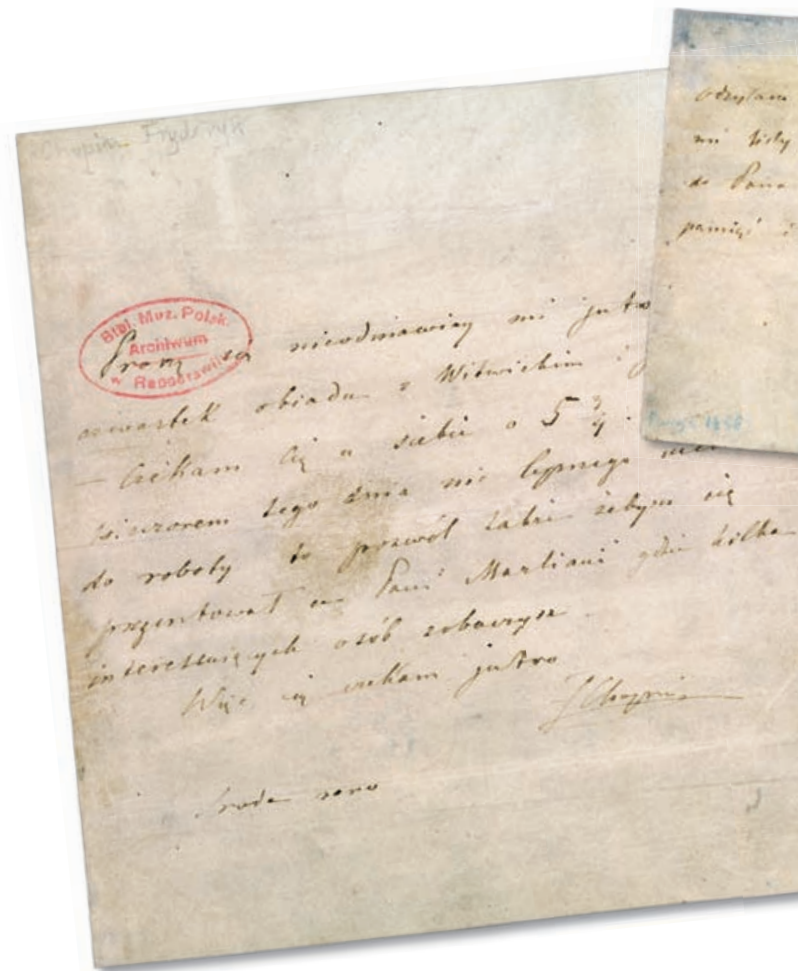 Chopin Fryderyk
Bibl. Muz. Polsk.
Archiwum
w Rapperswilu
Proszę Cię nieodmawiay mi jutro
czwartek obiadu z Witwickim i
– Czekam Cię u siebie o 5 3/4.
wieczorem tego dnia nic lepszego
do roboty to pozwól żebym Cię
prezentował u Pani Marliani gdzie kilka
interessuiących osób zobaczysz.
Więc Cię czekam jutro
FChopin
Środa rano
odsyłam
mi listy
do Pana
pamięć i